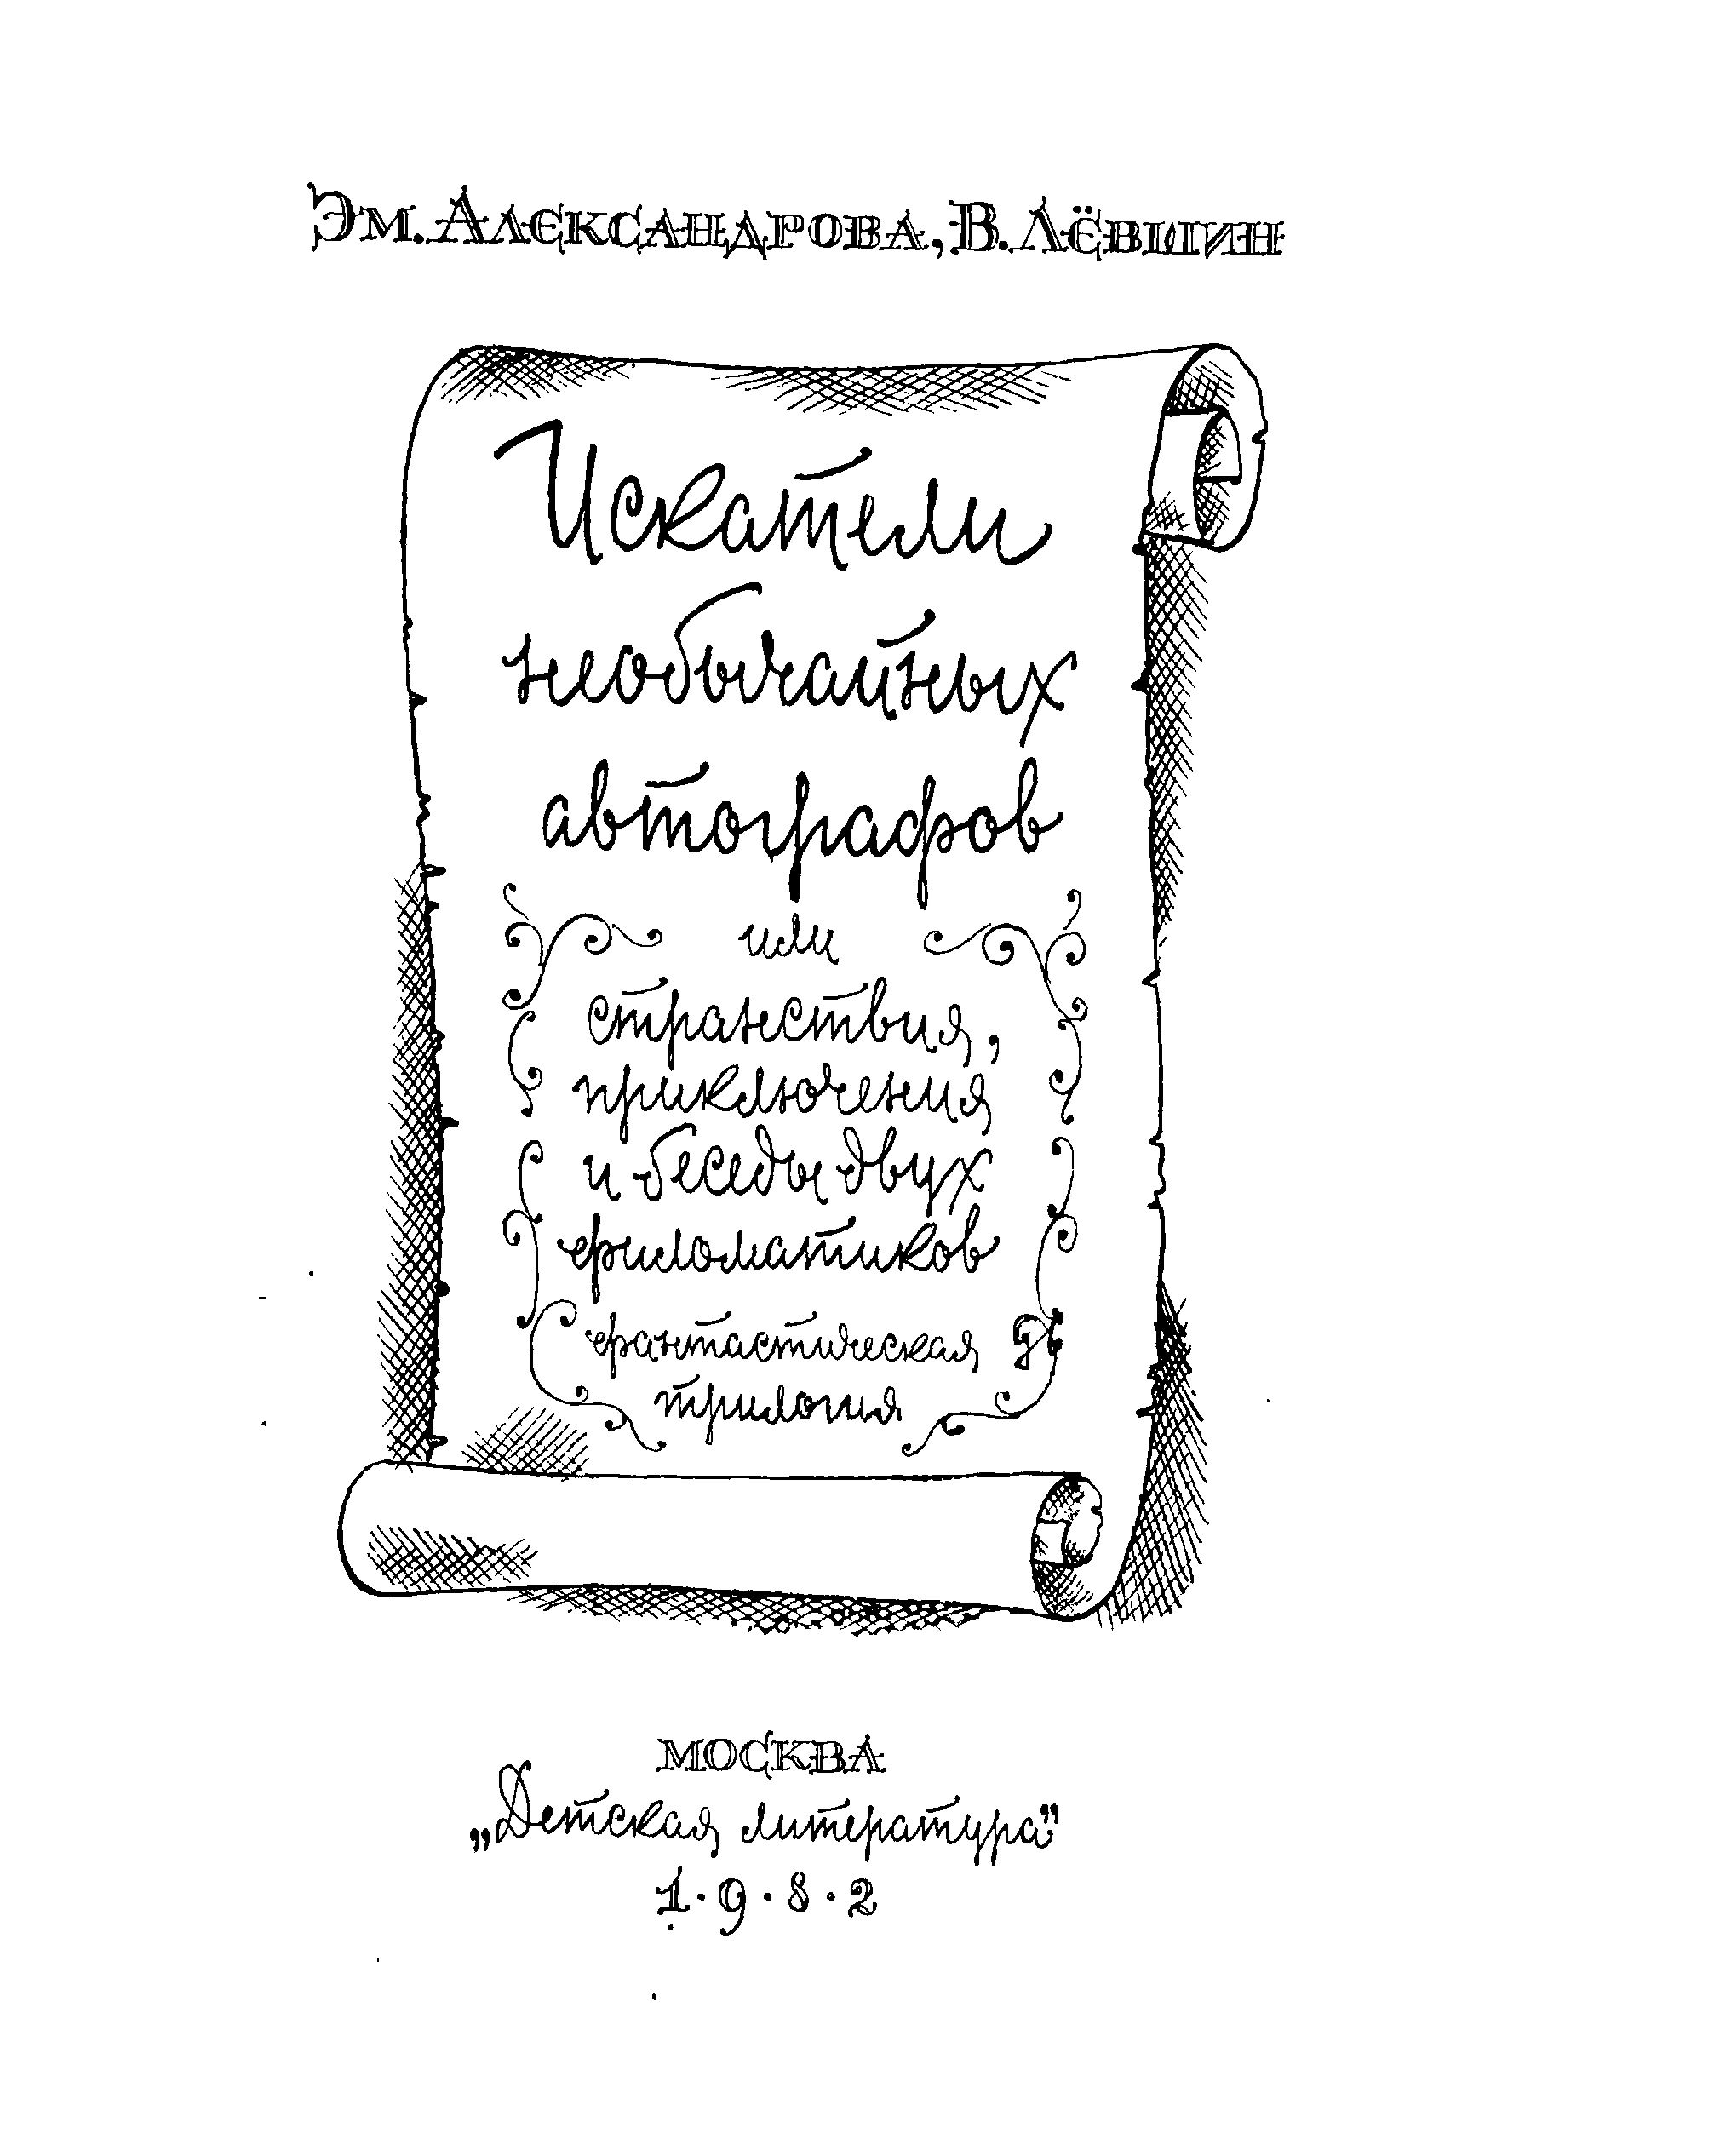 Эм. Александрова, В. Лёвшин
Искатели
необычайных
автографов
или
странствия,
приключения
и беседы двух
филоматиков
фантастическая
трилогия
МОСКВА
„Детская литература"
1·9·8·2